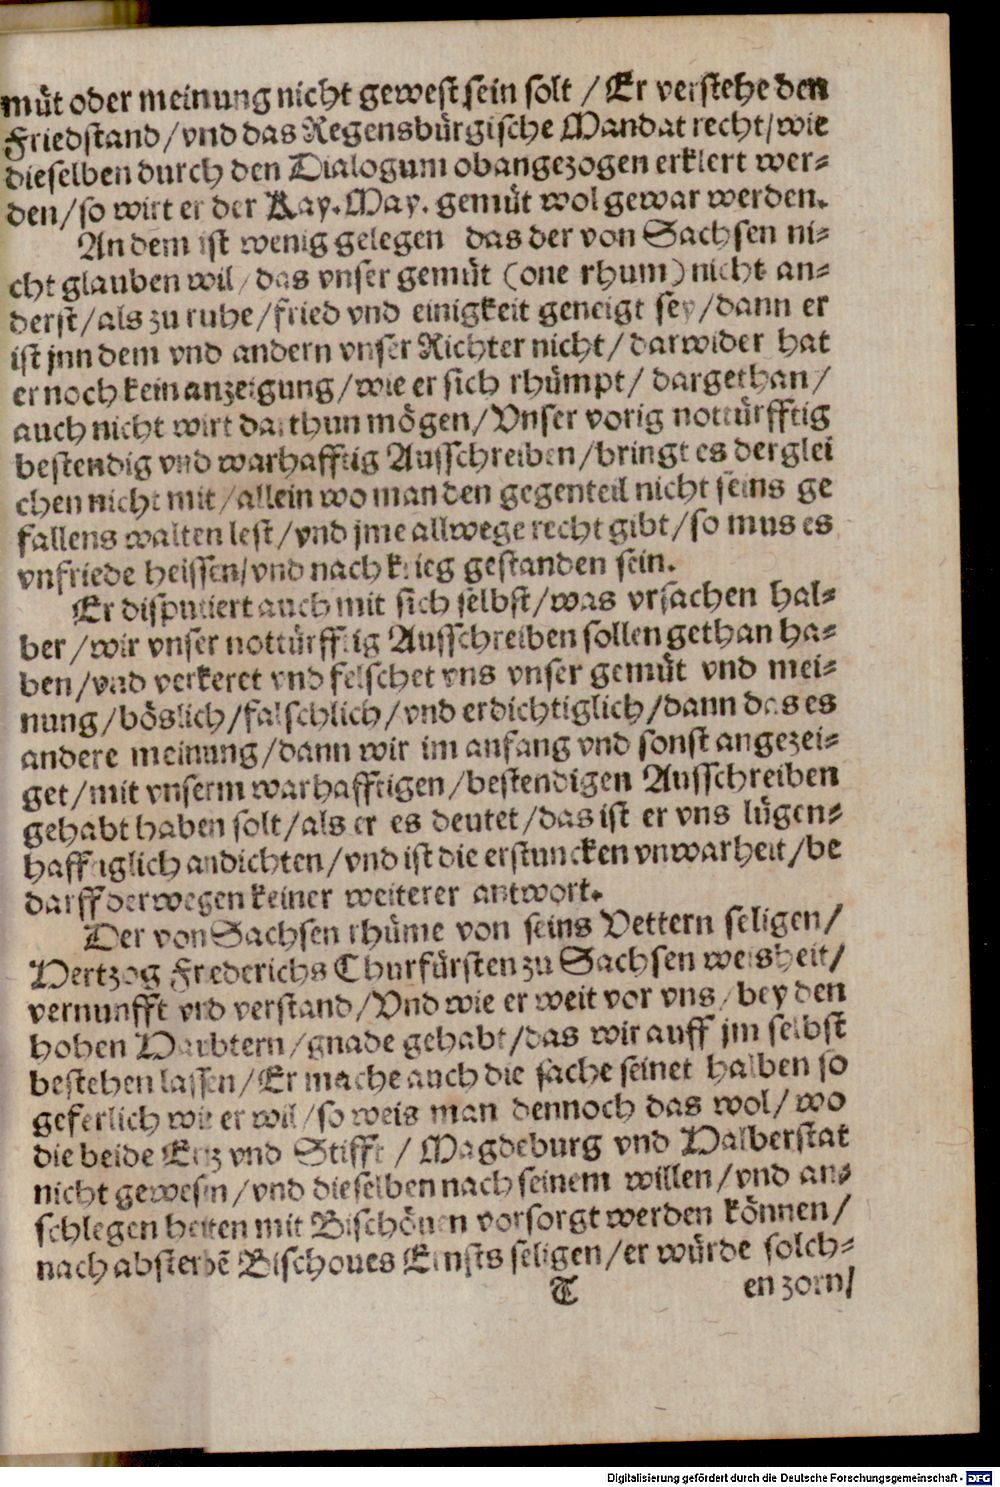 müt oder meinung nicht gewest sein solt / Er verstehe den
Friedstand/vnd das Regensbürgische Mandat recht/wie
dieselben durch den Dialogum obangezogen erklert wer-
den/so wirt er der Kay. May. gemüt wol gewar werden.
An dem ist wenig gelegen das der von Sachsen ni-
cht glauben wil/das vnser gemüt (one rhum) nicht an-
derst/als zu ruhe/fried vnd einigkeit geneigt sey/dann er
ist jnn dem vnd andern vnser Richter nicht/ darwider hat
er noch kein anzeigung/wie er sich rhümpt/ dargethan/
auch nicht wirt darthun mögen/Vnser vorig nottürfftig
bestendig vnd warhafftig Ausschreiben/bringt es derglei
chen nicht mit/allein wo man den gegenteil nicht seins ge
fallens walten lest/vnd jme allwege recht gibt/so mus es
vnfriede heissen/vnd nach krieg gestanden sein.
Er disputiert auch mit sich selbst/was vrsachen hal-
ber/wir vnser nottürfftig Ausschreiben sollen gethan ha-
ben/vnd verkeret vnd felschet vns vnser gemüt vnd mei-
nung/böslich/falschlich/vnd erdichtiglich/dann das es
andere meinung/dann wir im anfang vnd sonst angezei-
get/mit vnserm warhafftigen/bestendigen Ausschreiben
gehabt haben solt/als er es deutet/das ist er vns lügen-
hafftiglich andichten/vnd ist die erstuncken vnwarheit/be
darff derwegen keiner weiterer antwort.
Der von Sachsen rhüme von seins Vettern seligen/
Hertzog Frederichs Churfürsten zu Sachsen weisheit/
vernunfft vnd verstand/Vnd wie er weit vor vns/bey den
hohen Heubtern/gnade gehabt/das wir auff jm selbst
bestehen lassen/Er mache auch die sache seinet halben so
geferlich wie er wil/so weis man dennoch das wol/ wo
die beide Ertz vnd Stifft / Magdeburg vnd Halberstat
nicht gewesen/vnd dieselben nach seinem willen/vnd an-
schlegen hetten mit Bischöuen vorsorgt werden können/
nach absterbē Bischoues Ernsts seligen/er würde solch-
T en zorn/
Digitalisierung gefördert durch die Deutsche Forschungsgemeinschaft - DFG